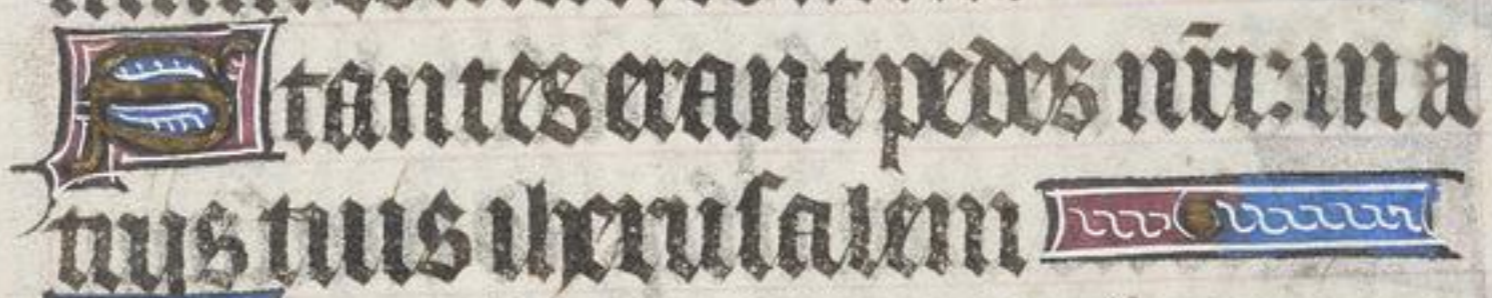 Stantes erant pedes nr̄i: in a
trijs tuis iherusalem